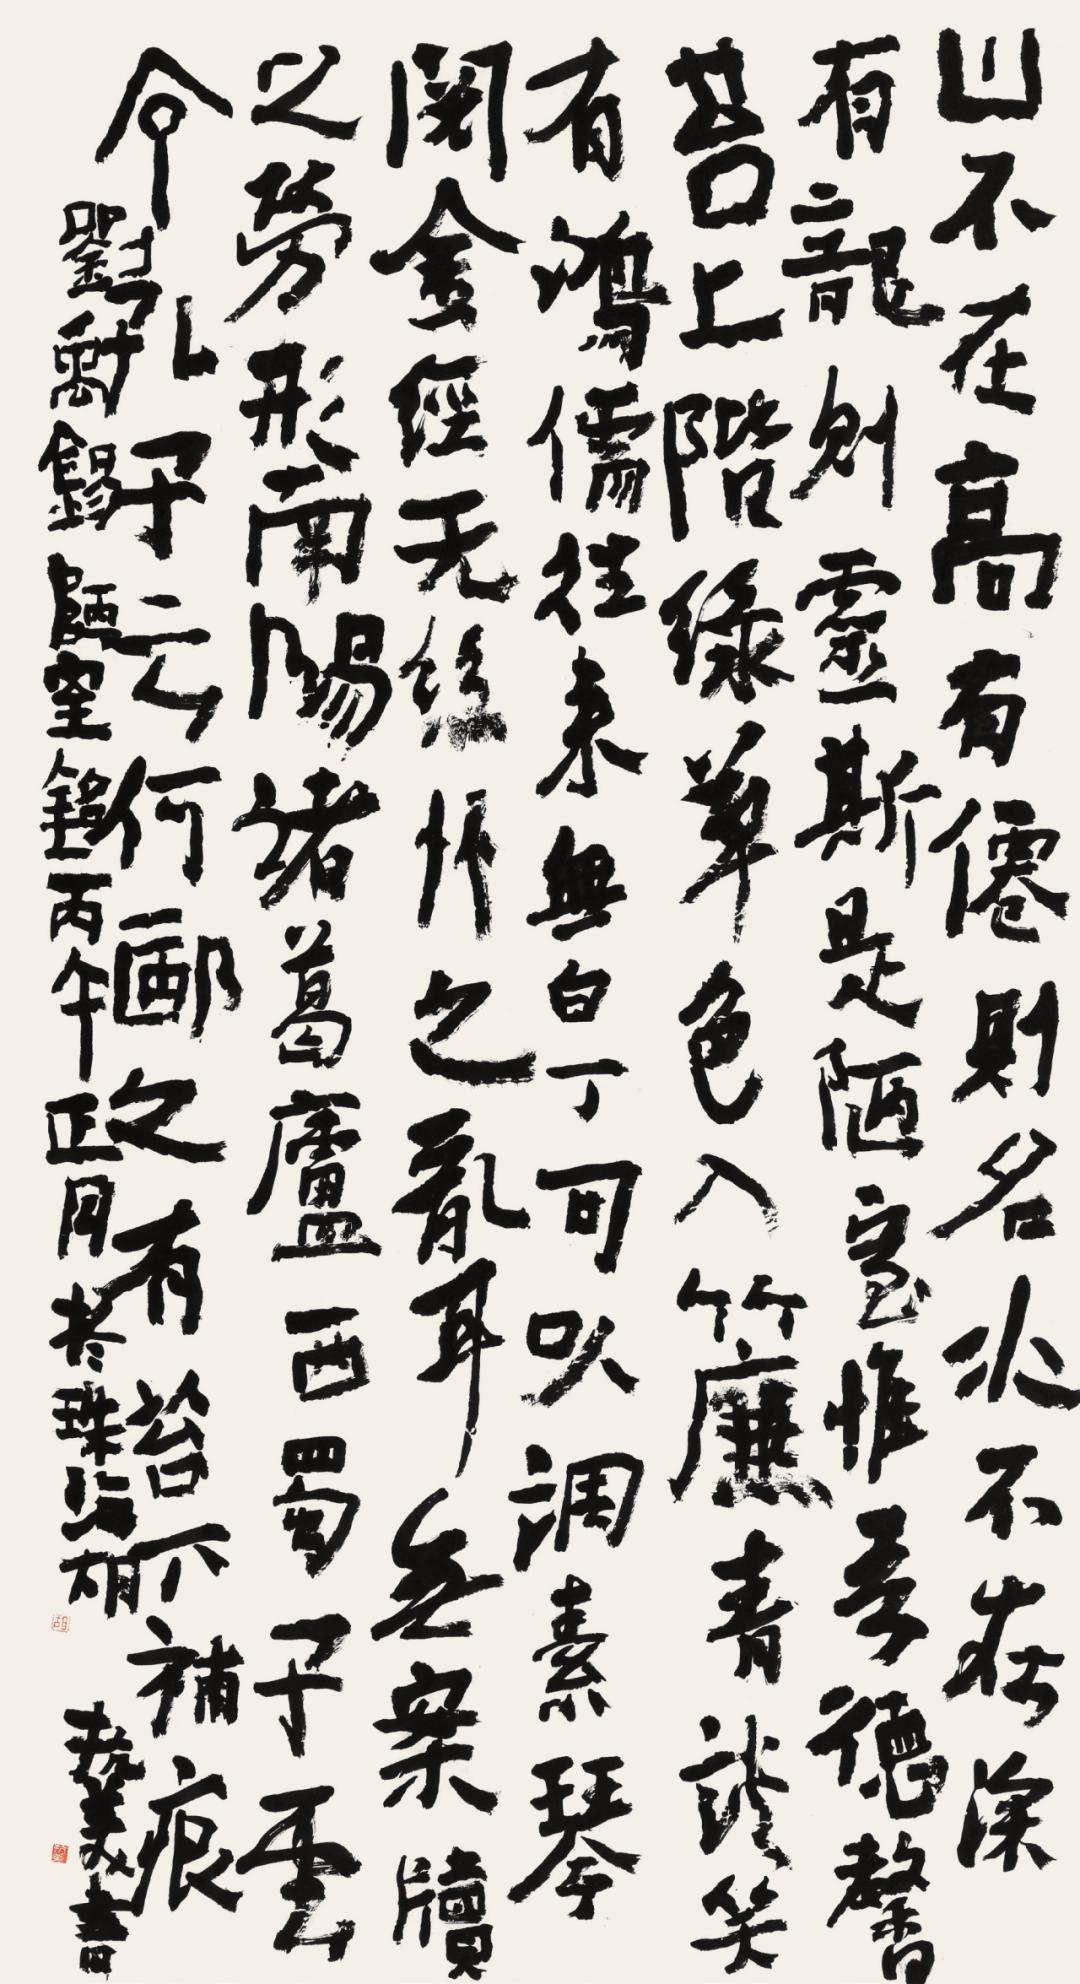 山不在高有僊則名水不在深
有龍則靈斯是陋室惟吾德馨
苔上階綠草色入簾青談笑
有鴻儒往來無白丁可以調素琴
閱金經无絲竹之亂耳無案牘
之勞形南陽諸葛廬西蜀子雲
亭孔子云何陋之有苔下補痕
劉禹錫陋室銘丙午正月於珠海胡書